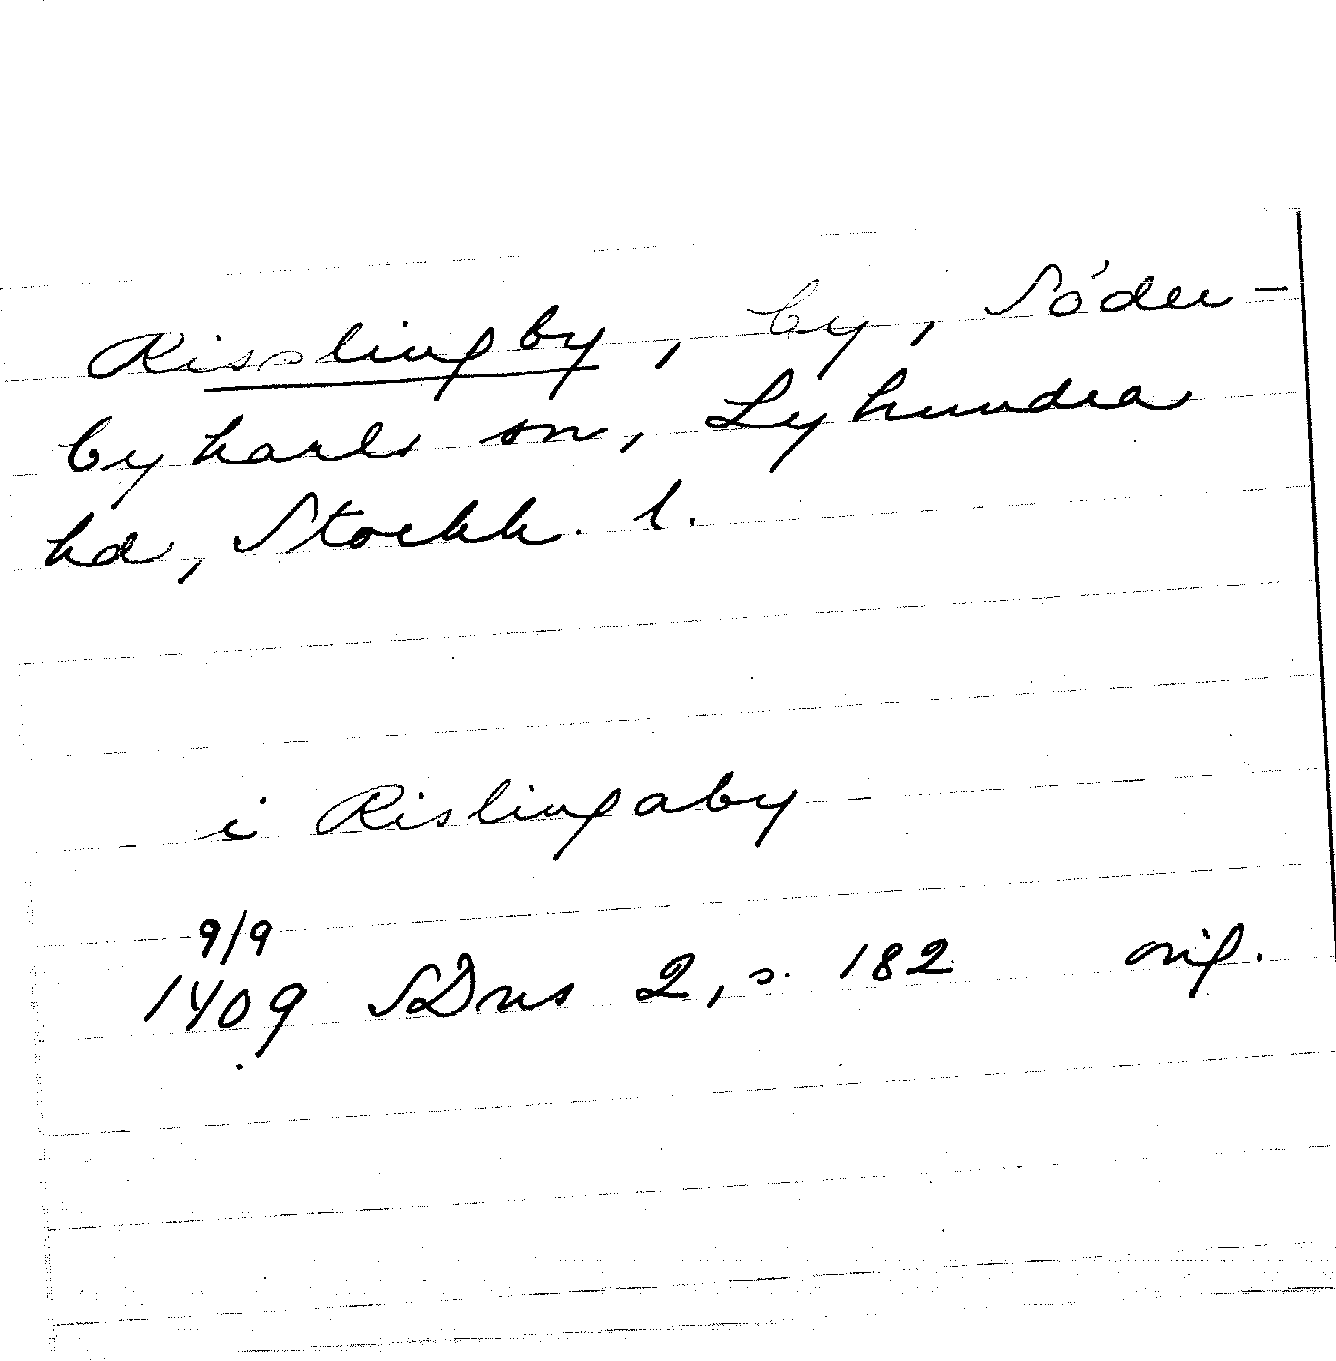 Risslingby, by, Söder-
bykarls sn, Lyhundra
hd, Stockh. l.
i Rislingaby
9/9
1409 SDns 2, s. 182 orig.